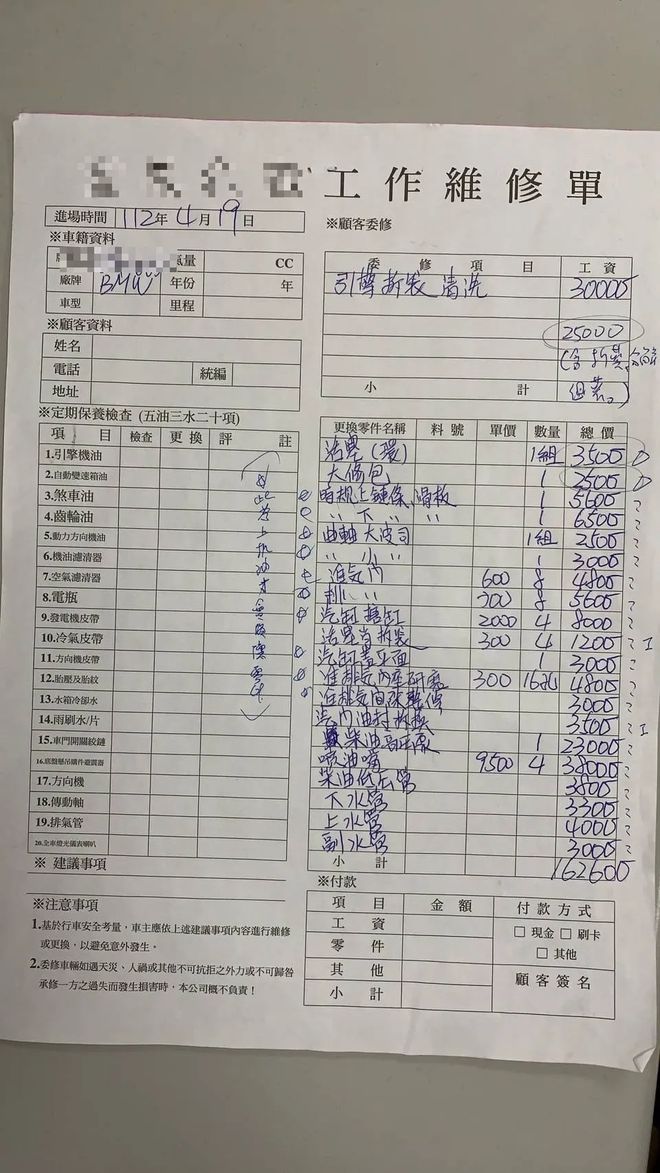 工作維修單
進場時間 112年4月19日
※車籍資料
氣量 CC
廠牌 BMW 年份 年
車型 里程
※顧客資料
姓名
電話 統編
地址
※顧客委修
委修項目 工資
引擎拆裝 清洗 30000
25000
(含拆裝
組裝。)
小計
※定期保養檢查 (五油三水二十項)
項目 檢查 更換 評註
1.引擎機油
2.自動變速箱油
3.煞車油
4.齒輪油
5.動力方向機油
6.機油濾清器
7.空氣濾清器
8.電瓶
9.發電機皮帶
10.冷氣皮帶
11.方向機皮帶
12.胎壓及胎紋
13.水箱冷卻水
14.雨刷水/片
15.車門開關鉸鏈
16.底盤懸吊機件避震器
17.方向機
18.傳動軸
19.排氣管
20.全車燈光儀表喇叭
※ 建議事項
更換零件名稱 料號 單價 數量 總價
活塞(環) 1組 3500
大修包 1 2500
時規上鏈條.滑板 1 5600
〃 下 〃 〃 1 6500
曲軸大波司 1組 2500
〃 小 〃 1 3000
進氣門 600 8 4800
排 〃 〃 700 8 5600
汽缸搪缸 2000 4 8000
活塞肖拆裝 300 4 1200
汽缸蓋平面 1 3000
進排氣門座研磨 300 16 4800
進排氣間隙整修 3000
汽門油封拆換 3500
柴油高壓泵 1 23000
噴油嘴 9500 4 38000
柴油低壓管 3800
下水管 3300
上水管 4000
副水管 3000
小計 162600
※付款
項目 金額 付款方式
工資 □ 現金 □ 刷卡
零件 □ 其他
其他 顧客簽名
小計
※注意事項
1.基於行車安全考量,車主應依上述建議事項內容進行維修
或更換,以避免意外發生。
2.委修車輛如遇天災、人禍或其他不可抗拒之外力或不可歸咎
承修一方之過失而發生損害時,本公司概不負責!